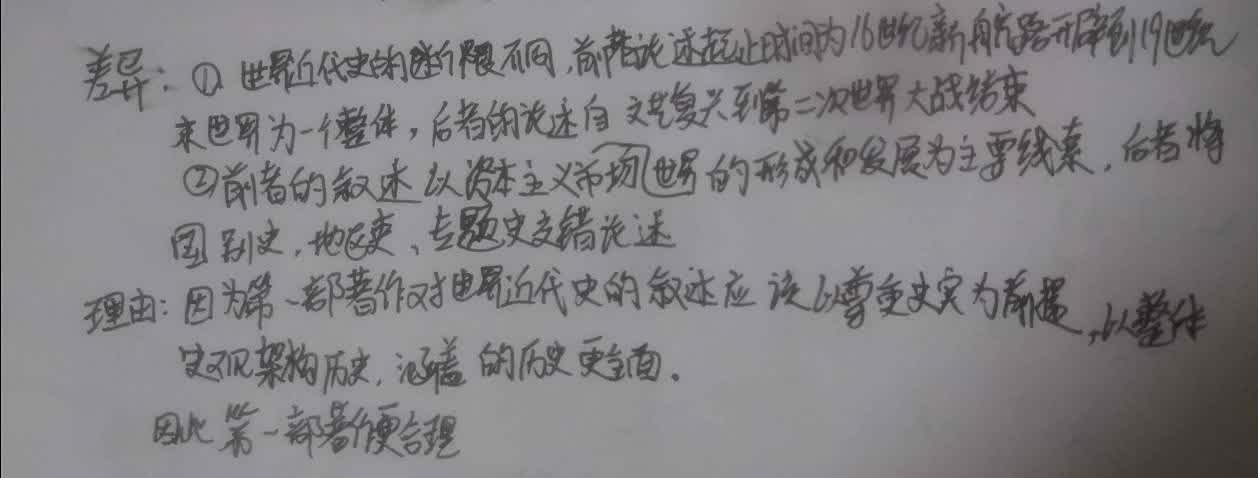 差异：① 世界近代史的断限不同，前者论述起止时间为16世纪新航路开辟到19世纪
末世界为一个整体，后者的论述自文艺复兴到第二次世界大战结束
②前者的叙述以资本主义市场世界的形成和发展为主要线索，后者将
国别史，地区史、专题史交错论述
理由：因为第一部著作对世界近代史的叙述应该以尊重史实为前提，以整体
史观架构历史，涵盖的历史更全面。
因此第一部著作更合理